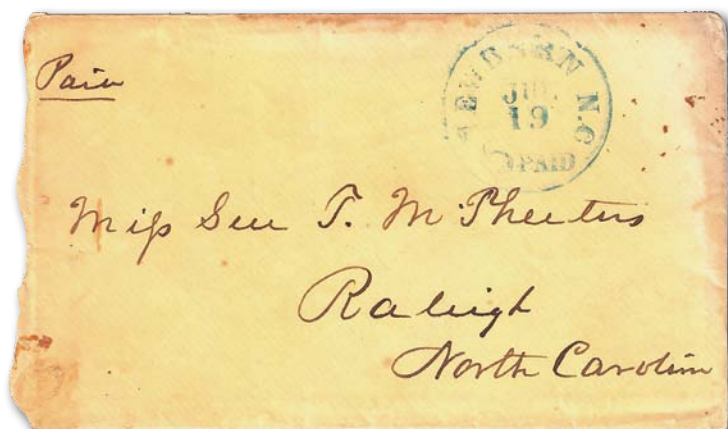 Paid
NEWBERN N.C
JUL
19
PAID
Miss Sue T. McPheeters
Raleigh
North Carolina